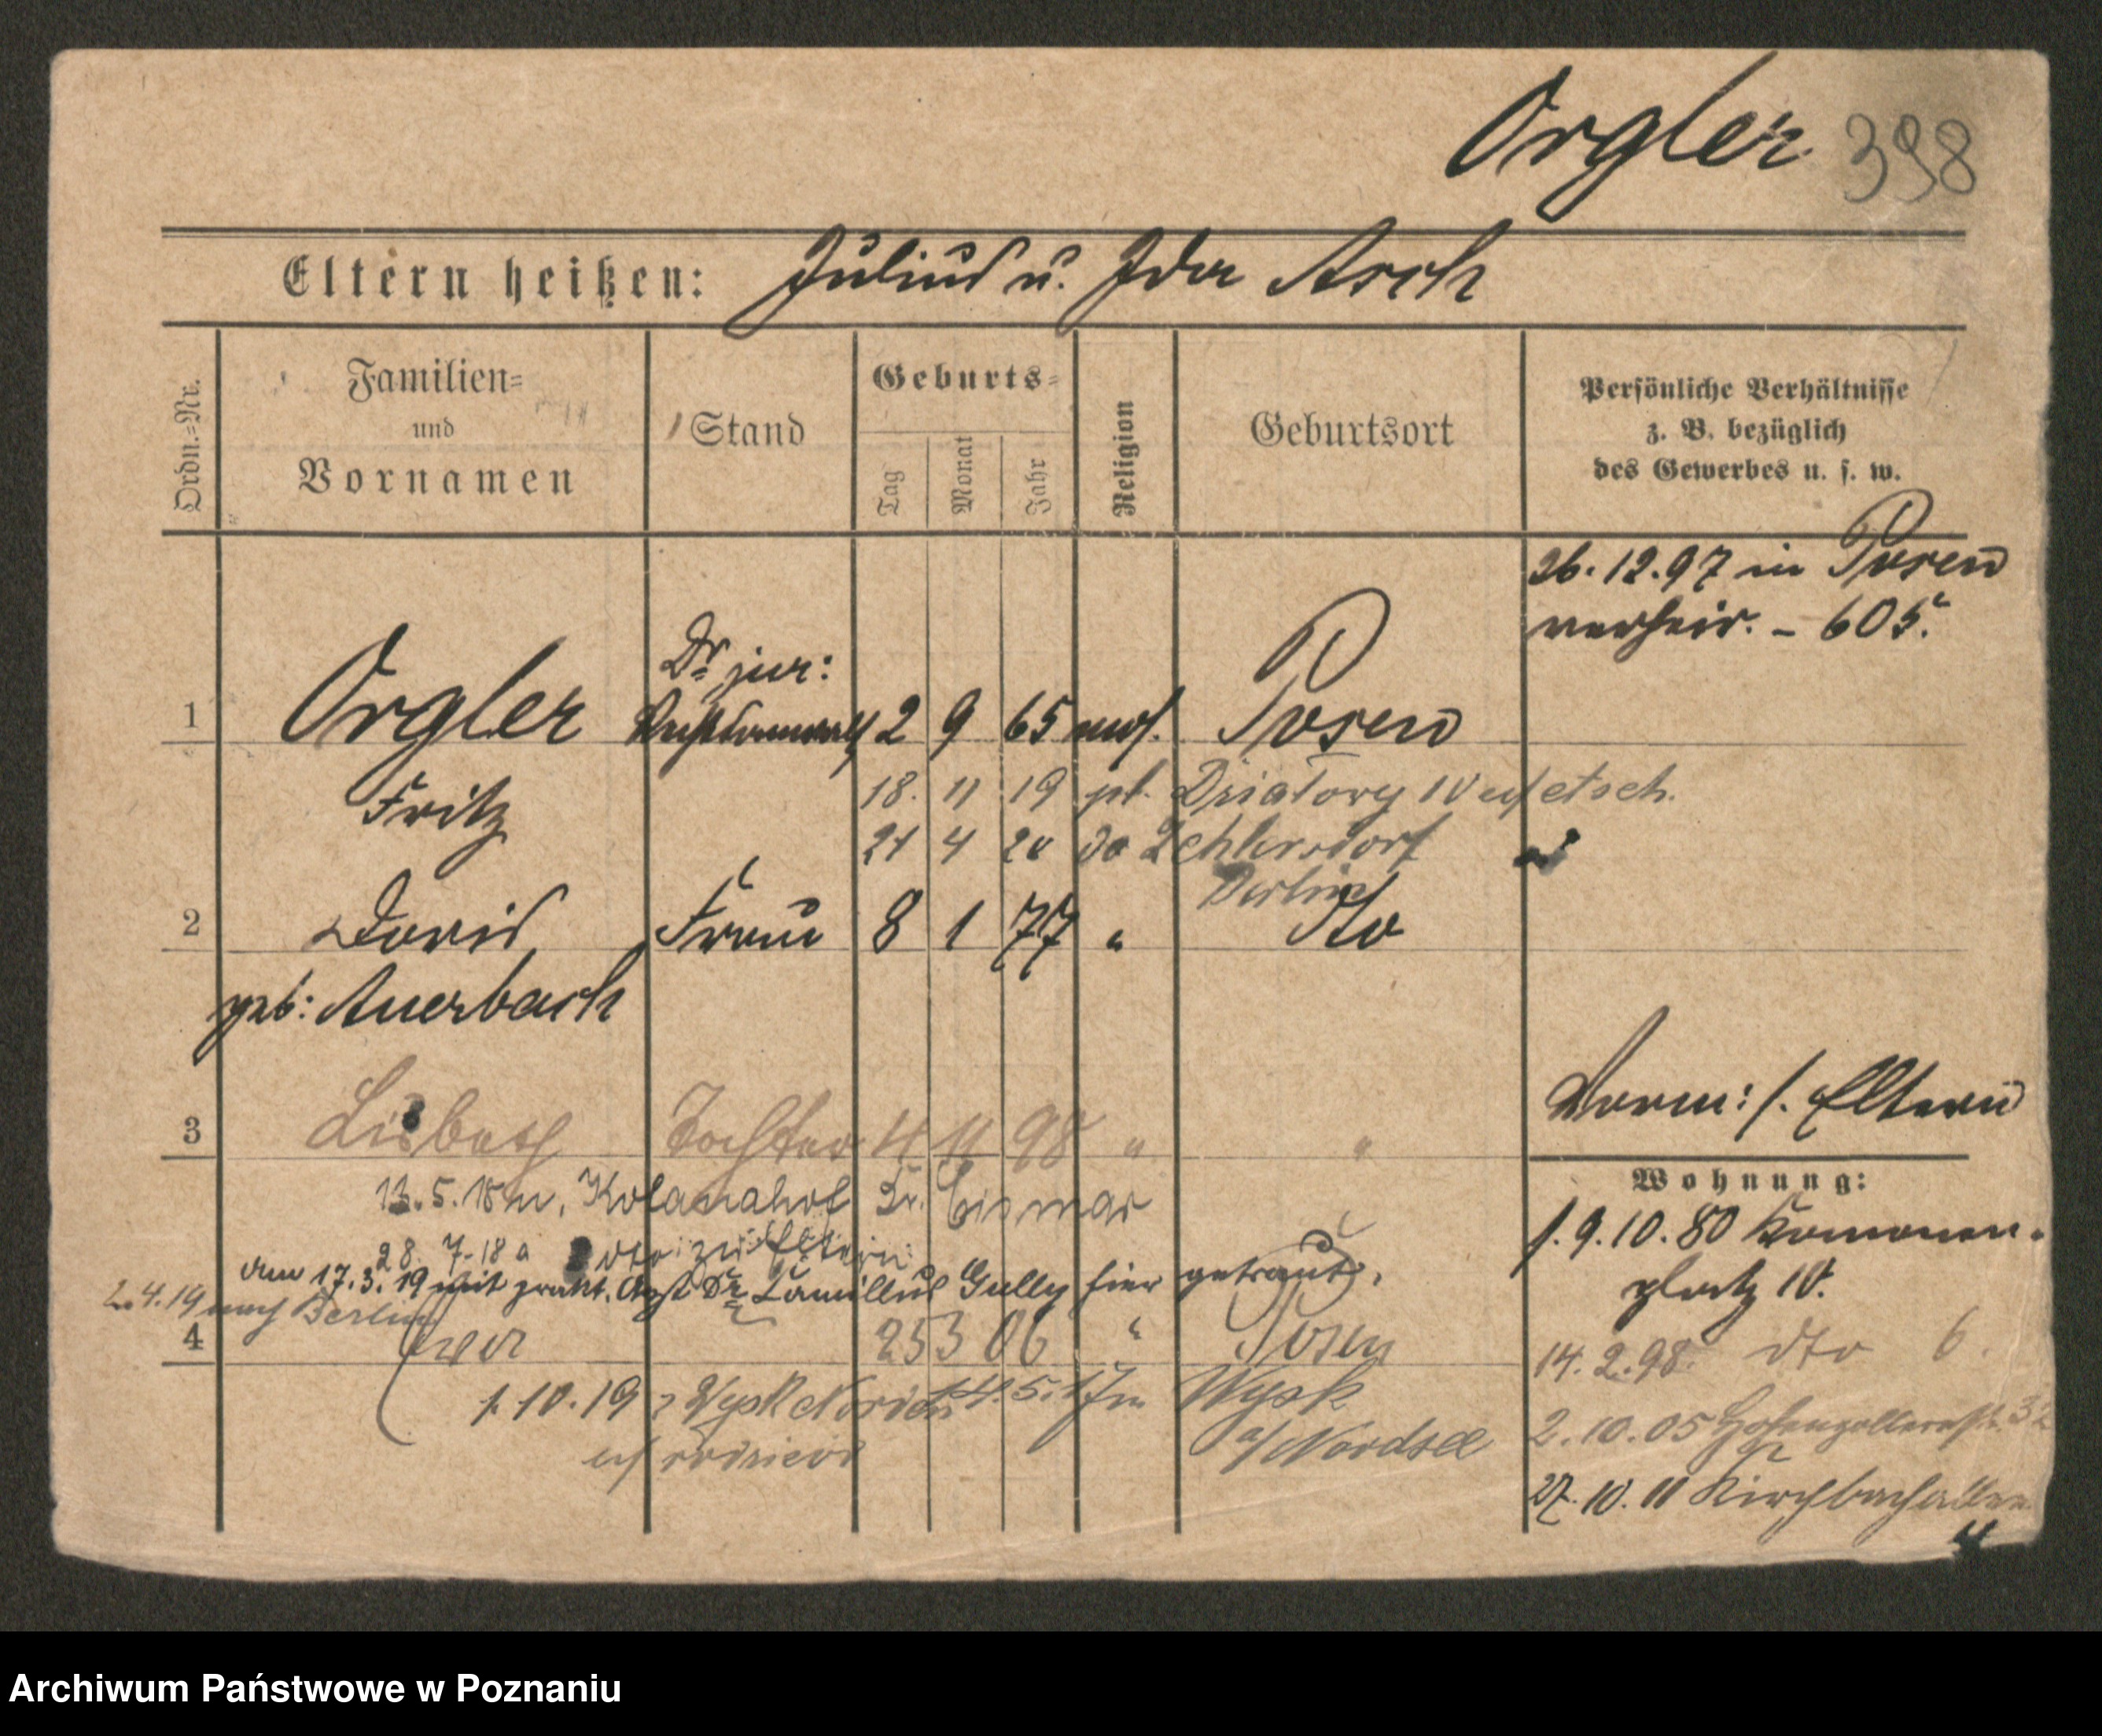 Orgler 398
Eltern heißen: Julius u. Ida Asch
Ordn.=Nr.
Familien=
und
Vornamen
Stand
Geburts=
Tag
Monat
Jahr
Religion
Geburtsort
Persönliche Verhältnisse
z. B. bezüglich
des Gewerbes u. s. w.
26.12.97 in Posen
verheir. - 605.
Dr jur:
1 Orgler Rechtsanwalt 2 9 65 mos. Posen
Fritz 18. 11 19 pl.
21 4 20 do Zehlendorf
Berlin
2 Doris Frau 8 1 77 " dto
geb: Auerbach
Verm: s. Eltern
3 Lisbeth Tochter 11 11 98 " "
Wohnung:
13.5.18 n. Kolanahof Kr. Cismar
28. 7. 18 a dto zu Eltern
am 17.3.19 mit prakt. Arzt Dr Camillus Gully hier getraut.
2.4.19 nach Berlin
4 Eva 25 3 06 " Posen
1.10.19 Wyk 14.5.17 n Wyk
a/Nordsee
rodzicow
1.9.10.80 Kanonen-
platz 10.
14.2.98. dto 6.
2.10.05 Hohenzollernstr. 32
27.10.11 Kirchbachallee
4
Archiwum Państwowe w Poznaniu